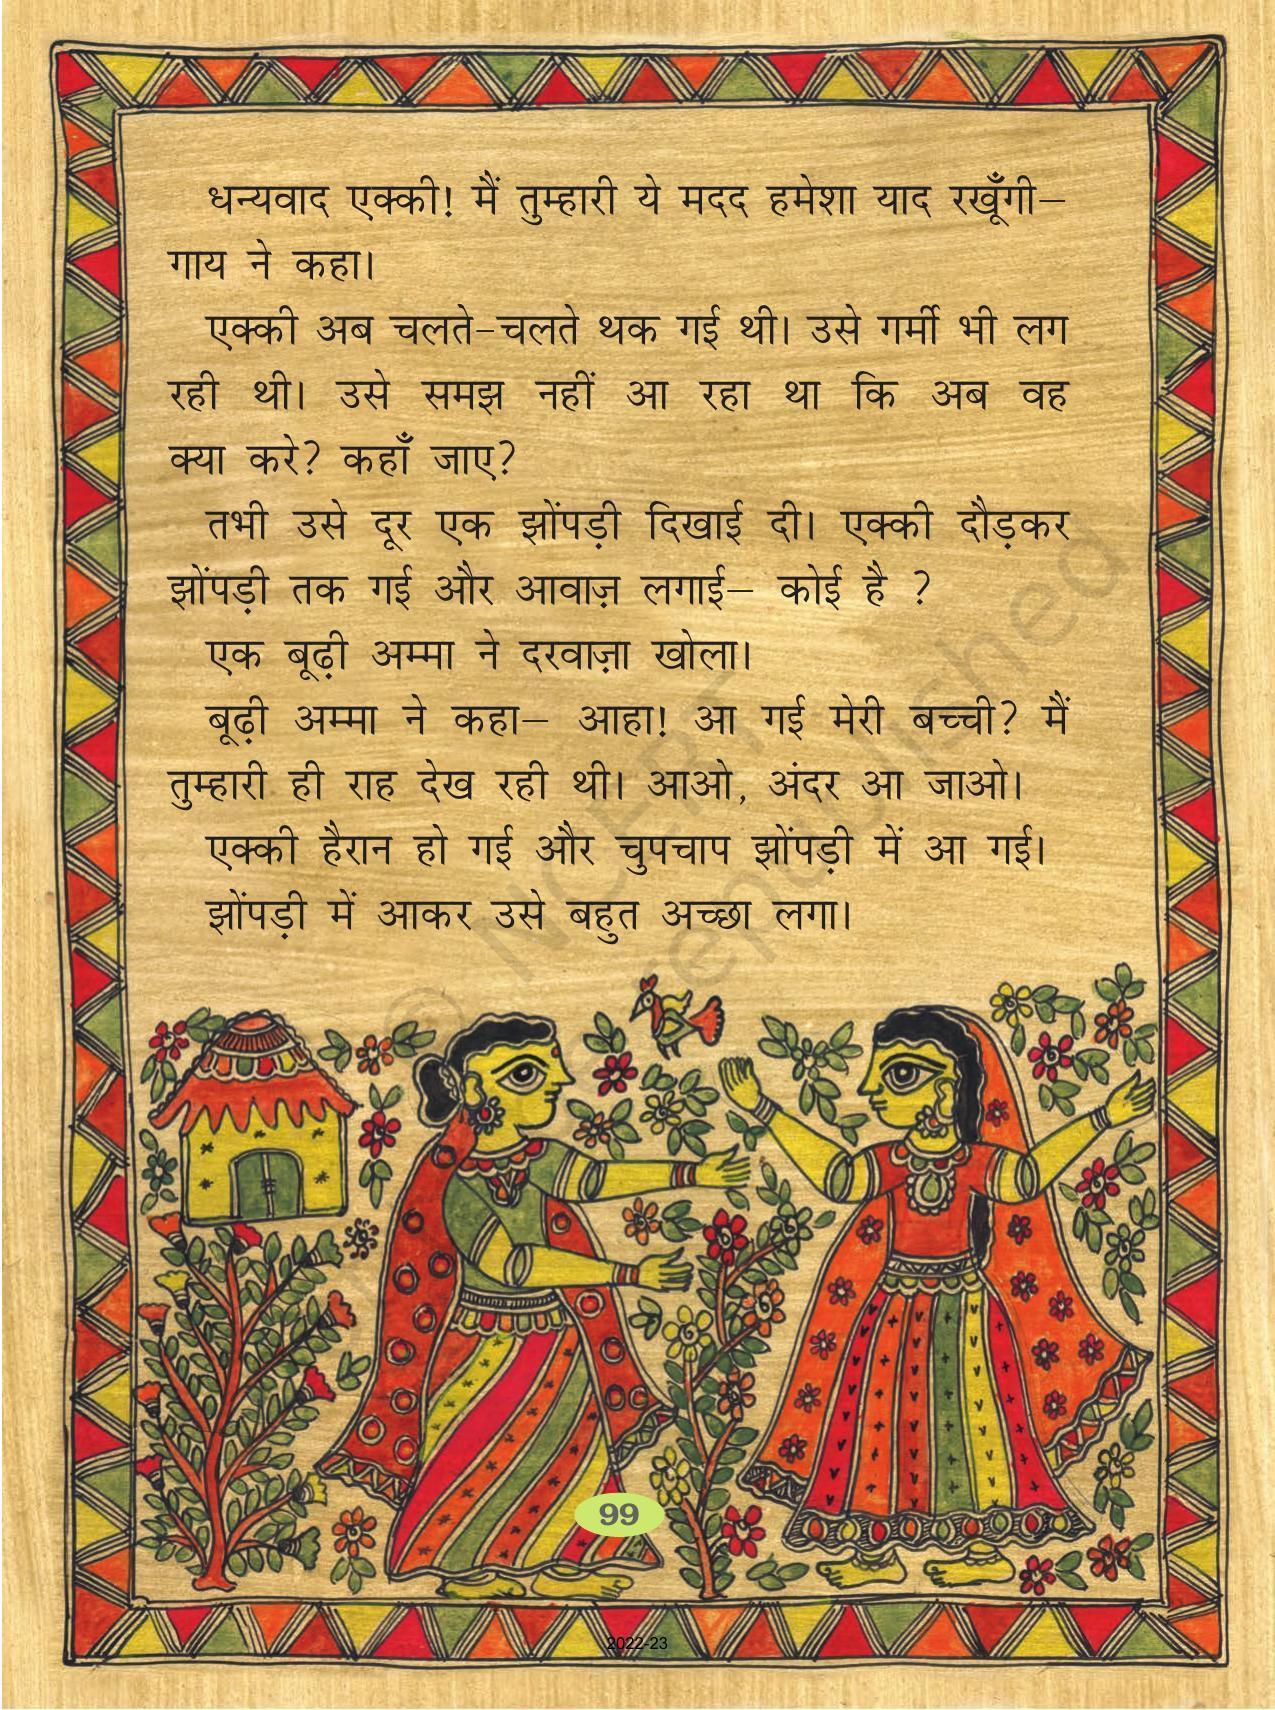 धन्यवाद एक्की! मैं तुम्हारी ये मदद हमेशा याद रखूँगी–
गाय ने कहा।
एक्की अब चलते-चलते थक गई थी। उसे गर्मी भी लग
रही थी। उसे समझ नहीं आ रहा था कि अब वह
क्या करे? कहाँ जाए?
तभी उसे दूर एक झोंपड़ी दिखाई दी। एक्की दौड़कर
झोंपड़ी तक गई और आवाज़ लगाई– कोई है ?
एक बूढ़ी अम्मा ने दरवाज़ा खोला।
बूढ़ी अम्मा ने कहा– आहा! आ गई मेरी बच्ची? मैं
तुम्हारी ही राह देख रही थी। आओ, अंदर आ जाओ।
एक्की हैरान हो गई और चुपचाप झोंपड़ी में आ गई।
झोंपड़ी में आकर उसे बहुत अच्छा लगा।
© NCERT
republished
99
2022-23